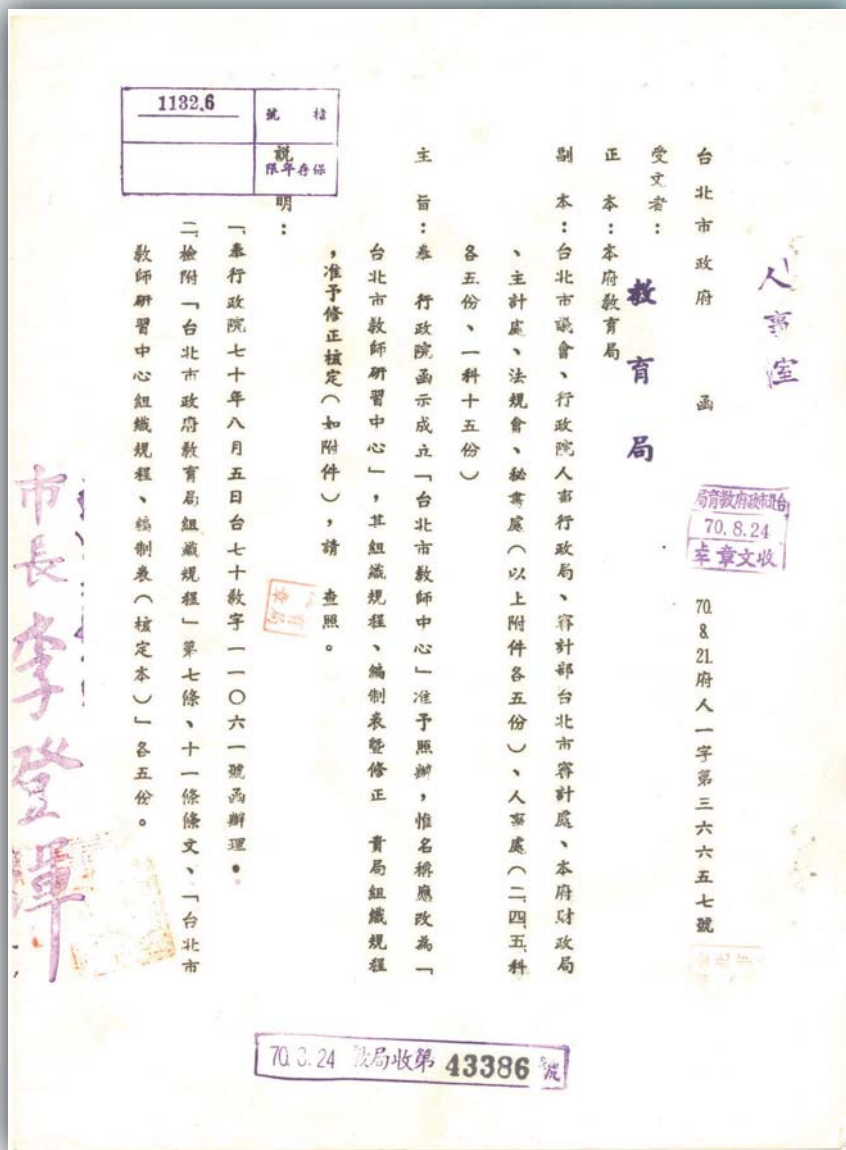 人事室
台北市政府　　函
70.8.21.府人一字第三六六五七號
台北市政府教育局
70.8.24
收文章
受文者：教育局
正　本：本府教育局
副　本：台北市議會、行政院人事行政局、審計部台北市審計處、本府財政局
、主計處、法規會、秘書處（以上附件各五份）、人事處（二、四、五、科
各五份、一科十五份）
主　旨：奉　行政院函示成立「台北市教師中心」准予照辦，惟名稱應改為「
台北市教師研習中心」，其組織規程、編制表暨修正　貴局組織規程
，准予修正核定（如附件），請　查照。
說　明：
一、奉行政院七十年八月五日台七十教字一一〇六一號函辦理。
二、檢附「台北市政府教育局組織規程」第七條、十一條條文、「台北市
教師研習中心組織規程、編制表（核定本）」各五份。
市長李登輝
檔號
1132.6
保存年限
70.8.24 教局收第 43386 號